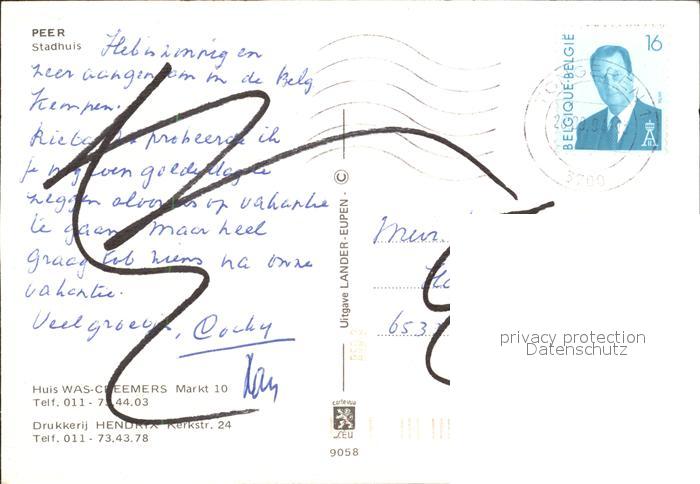 PEER
Stadhuis
Het is zonnig en
zeer aangenaam in de Belg
Kempen.
probeerde ik
je nog even goededag te
zeggen alvorens op vakantie
te gaan. Maar heel
graag tot ziens na onze
vakantie.
Veel groetjes, Cocky
Huis WAS-CREEMERS Markt 10
Telf. 011 - 73.44.03
Drukkerij HENDRIX Kerkstr. 24
Telf. 011 - 73.43.78
Uitgave LANDER - EUPEN - ©
cartevue
LEU
9058
BELGIQUE·BELGIË
16
3700
653
privacy protection
Datenschutz